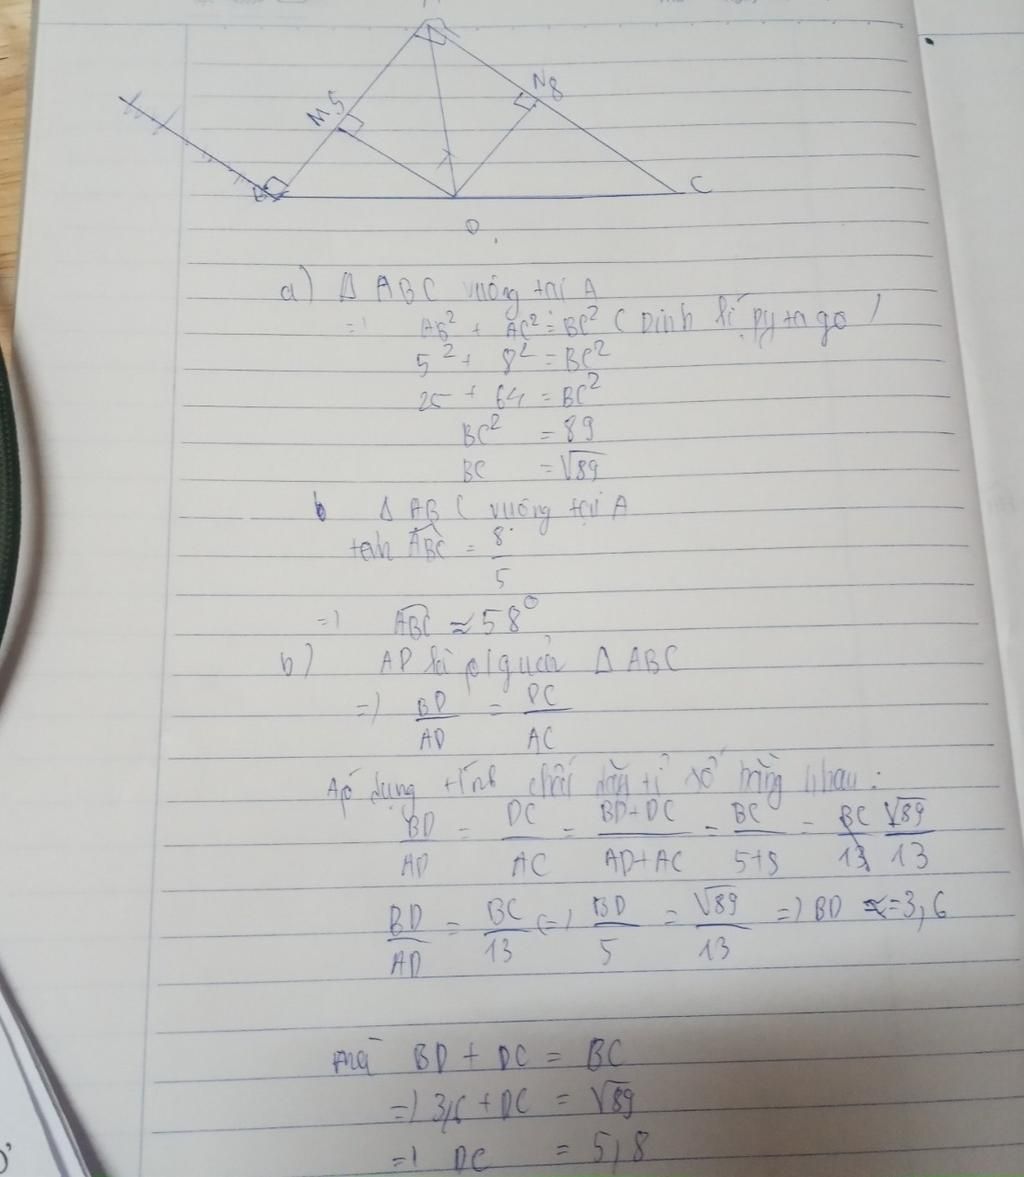 M 5
N 8
B
C
D
a) Δ ABC vuông tại A
=> AB² + AC² = BC² ( Định lí pytago )
5² + 8² = BC²
25 + 64 = BC²
BC² = 89
BC = √89
b Δ ABC vuông tại A
tan ABC = 8/5
=> ABC ≈ 58°
b) AD là p/g của Δ ABC
=> BD/AD = DC/AC
Áp dụng tính chất dãy tỉ số bằng nhau :
BD/AD = DC/AC = BD+DC/AD+AC = BC/5+8 = BC/13 √89/13
BD/AD = BC/13 (=) BD/5 = √89/13 => BD ≈ 3,6
mà BD + DC = BC
=> 3,6 + DC = √89
=> DC = 5,8